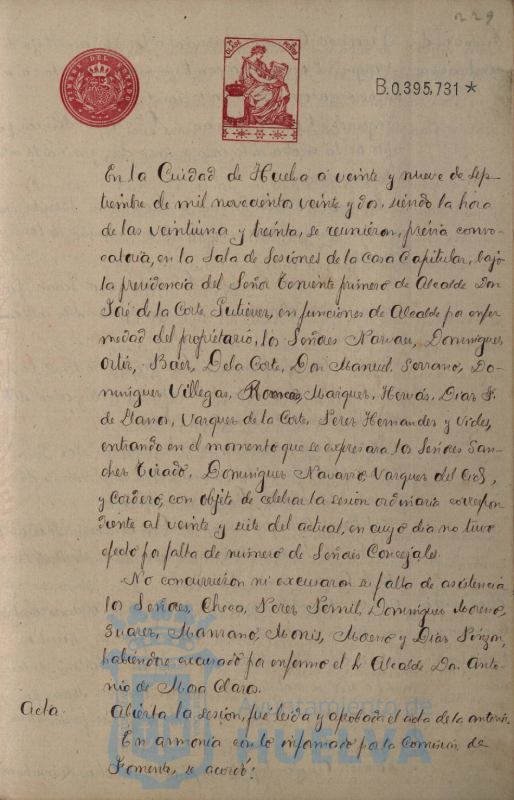 229
TIMBRE DEL ESTADO
B.0,395,731 *
En la Cuidad de Huelva a veinte y nueve de Sep-
tiembre de mil novecientos veinte y dos, siendo la hora
de las veintiuna y treinta, se reunieron, prévia convo-
catoria, en la Sala de Sesiones de la Casa Capitular, bajo
la presidencia del Señor Teniente primero de Alcalde Don
José de la Corte Gutierrez, en funciones de Alcalde por enfer
medad del propietario, los Señores Narvaez, Dominguez
Ortiz, Baez, De la Corte, Don Manuel Serrano, Do-
minguez Villegas, Marquez, Hervás, Diaz F.
de Llano, Vazquez de la Corte, Perez Hernandez y Vides,
entrando en el momento que se expresara los Señores San-
chez Tirado, Dominguez Navarro Vazquez del Cid,
y Cordero, con objeto de celebrar la sesion ordinaria correspon
diente al veinte y siete del actual, en cuyo dia no tuvo
efecto por falta de número de Señores Concejales.
No concurrieron ni excusaron su falta de asistencia
los Señores, Checa, Perez Pomil, Dominguez Moreno,
Suarez, Manzano, Monís, Moreno y Diaz Pinzon,
habiéndose excusado por enfermo el Sr Alcalde Dn. Anto-
nio de Mora Claros.
Acta. Abierta la sesion, fué leida y aprobada el acta de la anterior.
En armonía con lo informado por la Comision de
Fomento, se acordó:
Ayuntamiento de
HUELVA